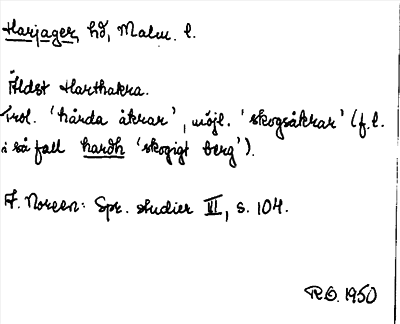 Harjager, hd, Malm. l.
Äldst Harthakra.
Trol. 'hårda åkrar', möjl. 'skogsåkrar' (f.l.
i så fall hardh 'skogigt berg').
A. Noreen: Spr. studier VI, s. 104.
R.O. 1950